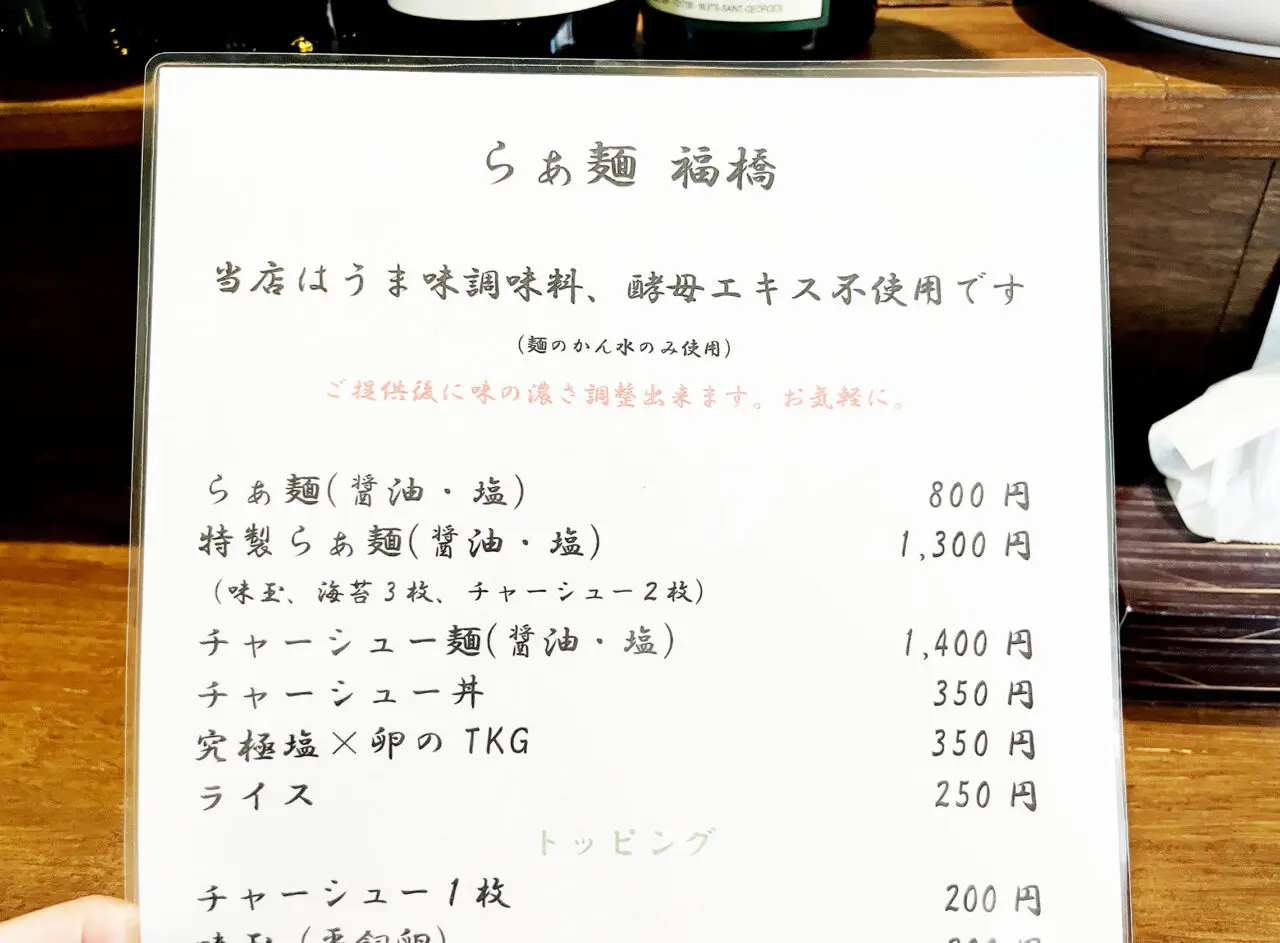 NUITS-SAINT-GEORGES
らぁ麺 福橋
当店はうま味調味料、酵母エキス不使用です
(麺のかん水のみ使用)
ご提供後に味の濃さ調整出来ます。お気軽に。
らぁ麺(醤油・塩) 800 円
特製らぁ麺(醤油・塩) 1,300 円
(味玉、海苔3枚、チャーシュー2枚)
チャーシュー麺(醤油・塩) 1,400 円
チャーシュー丼 350 円
究極塩×卵の TKG 350 円
ライス 250 円
トッピング
チャーシュー1枚 200 円
味玉(平飼卵)